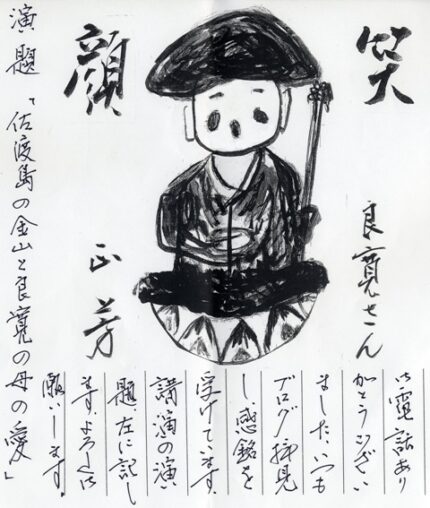 笑
顔
良寛さん
正芳
御電話あり
がとうござい
ました。いつも
ブログ拝見
し、感銘を
受けています。
講演の演
題、左に記し
ます。よろしく御
願いします。
演題「佐渡島の金山と良寛の母の愛」